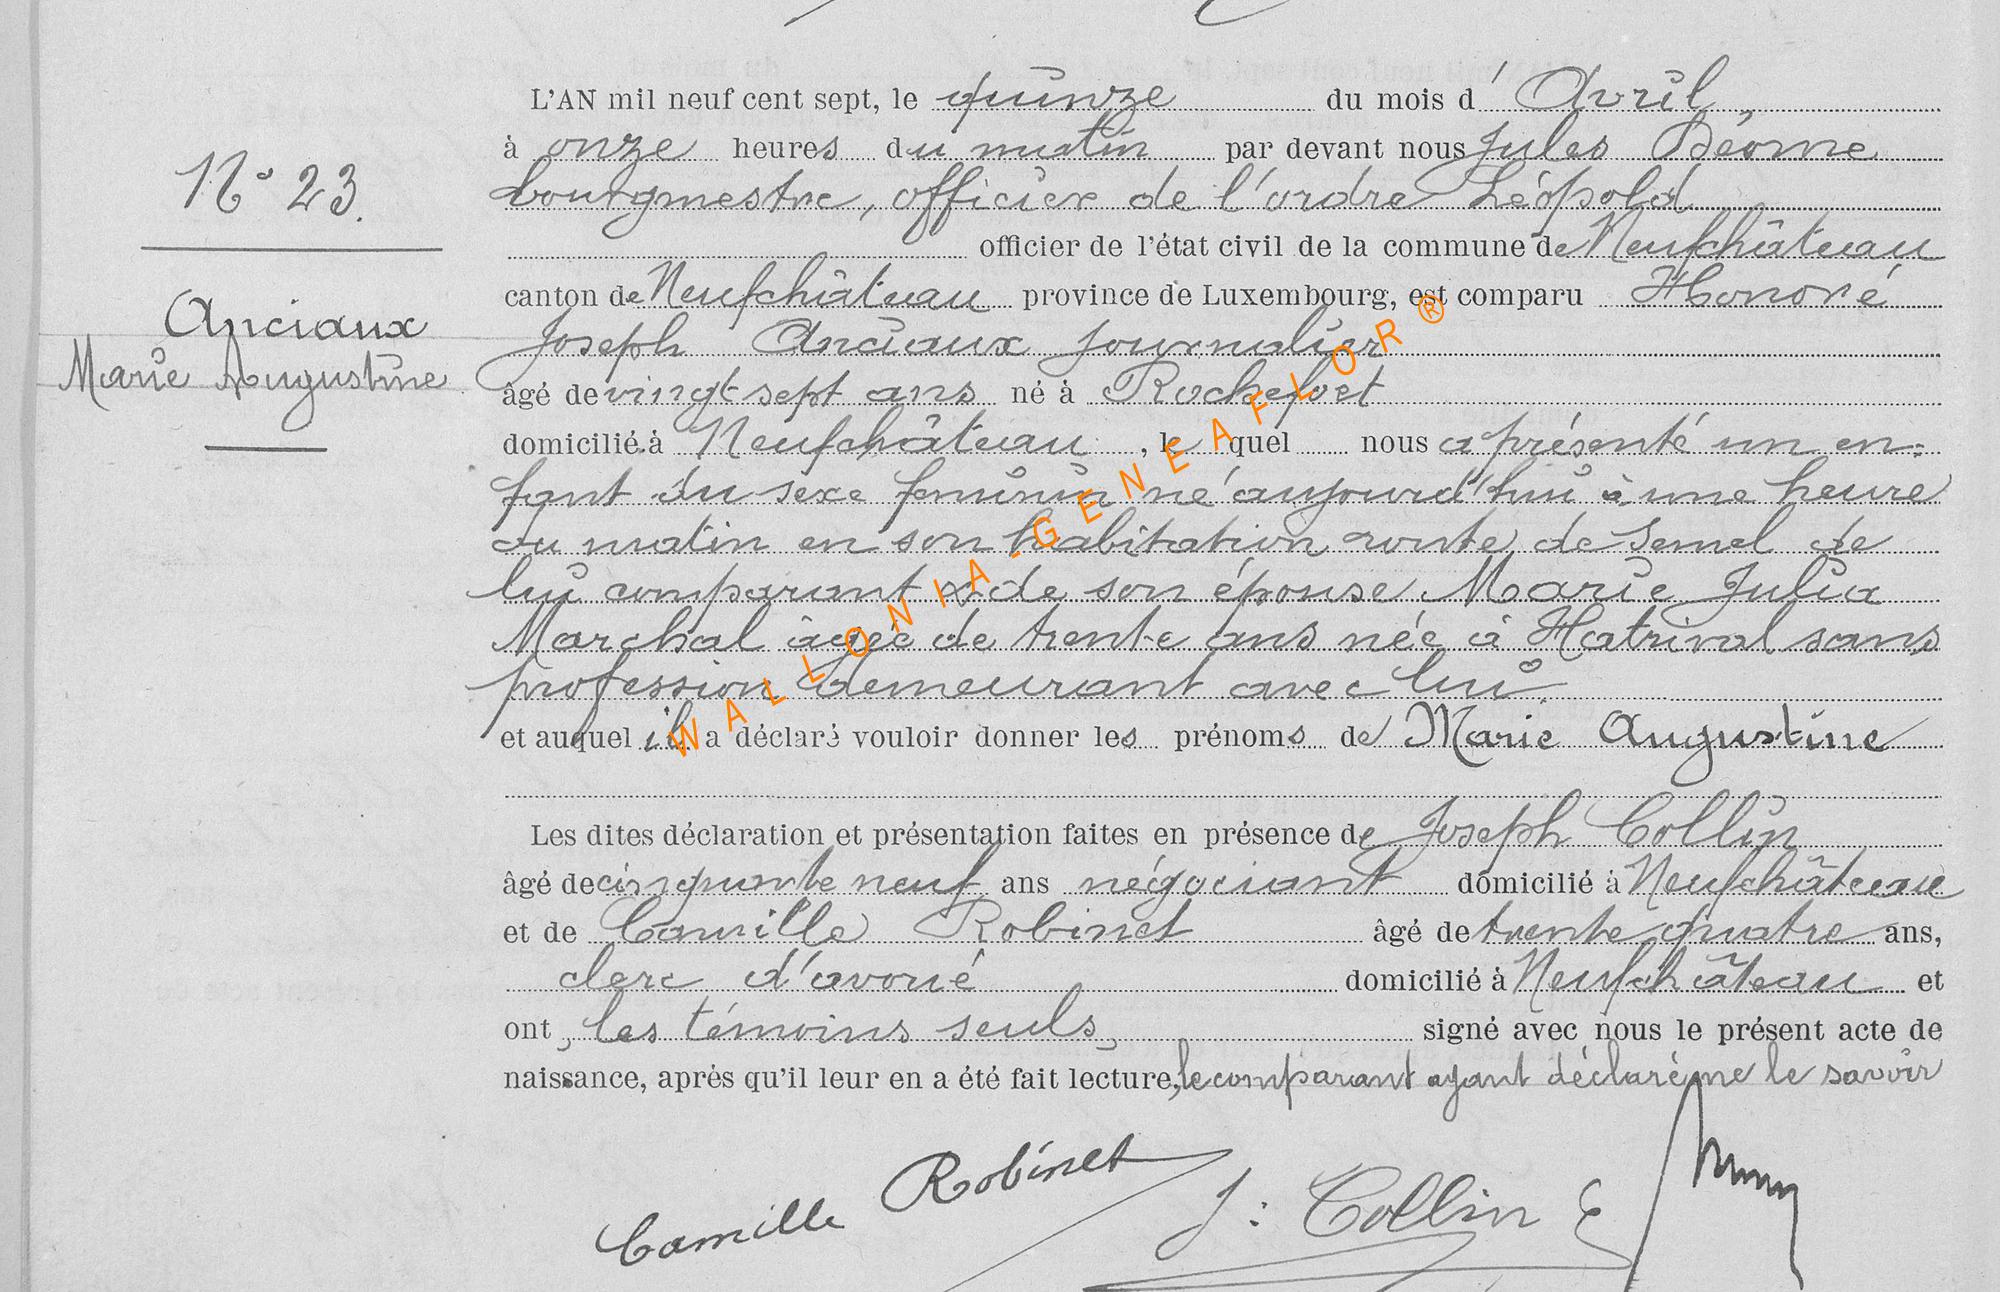 L'AN mil neuf cent sept, le quinze du mois d'Avril
à onze heures du matin par devant nous Jules
N° 23.
bourgmestre, officier de l'ordre Léopold
officier de l'état civil de la commune de Neufchâteau
canton de Neufchâteau province de Luxembourg, est comparu Honoré
Anciaux
Joseph Anciaux journalier
Marie Augustine
âgé de vingt sept ans né à Rochefort
domicilié à Neufchâteau, le quel nous a présenté un en=
fant du sexe féminin né aujourd'hui à une heure
du matin en son habitation route de Semel de
lui comparant & de son épouse Marie Julia
Marchal âgée de trente ans née à Hatrival sans
profession demeurant avec lui
et auquel il a déclaré vouloir donner les prénoms de Marie Augustine
Les dites déclaration et présentation faites en présence de Joseph Collin
âgé de cinquante neuf ans négociant domicilié à Neufchâteau
et de Camille Robinet âgé de trente quatre ans,
clerc d'avoué domicilié à Neufchâteau et
ont, les témoins seuls, signé avec nous le présent acte de
naissance, après qu'il leur en a été fait lecture, le comparant ayant déclaré ne le savoir
Camille Robinet J: Collin
WALLONIA-GENEAFLOR®